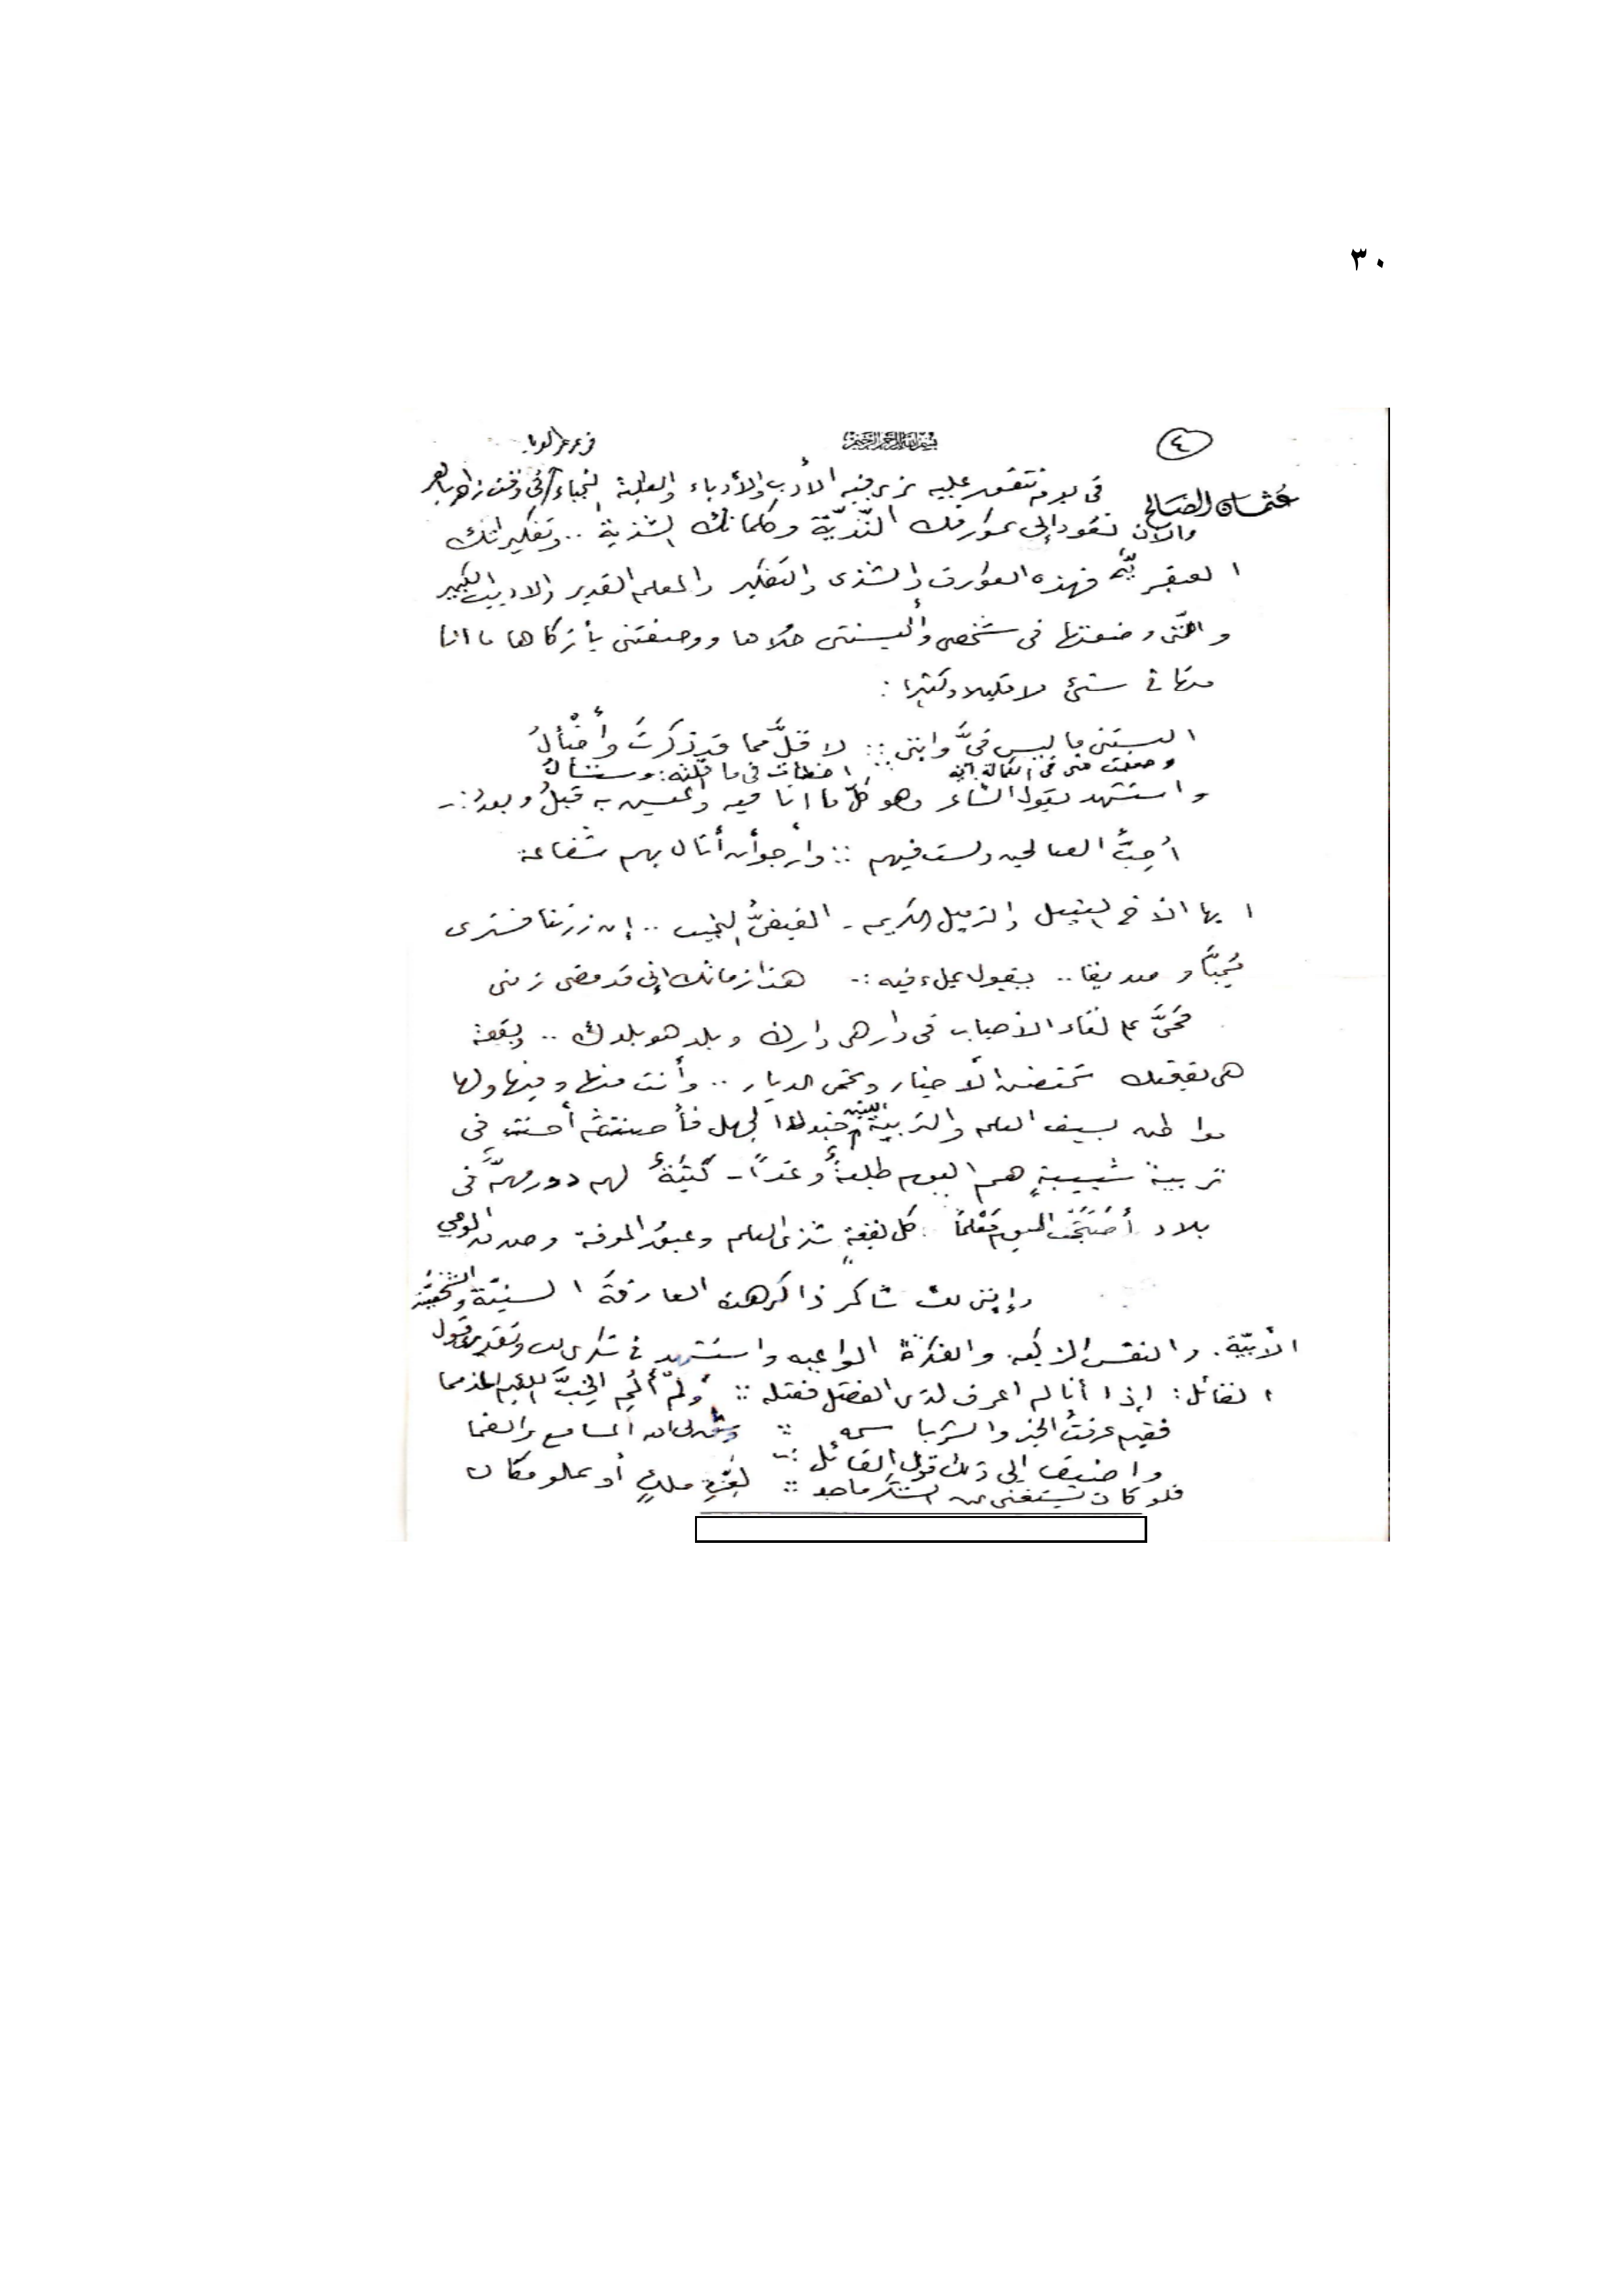 ٣٠
٤
بسم الله الرحمن الرحيم
عثمان الصالح
في يوم نتفق عليه نرى فيه الأدب والأدباء والطلبة النجباء في وقت
والآن نعود إلى عوارفك النّديّة وكلماتك الشذية .. وتفكيراتك
العبقريّة فهذه العوارف والشذى والتفكير والمعلم القدير والاديب الكبير
والتى وضعتها في شخصى وألبستنى حُلاها ووصفتنى بأزكاها ما انا
منها في شئ لا قليلا وكثيرا :
البستنى ما ليس فيَّ وإننى :: لا قلَّ مما قد ذكرتَ وأضألُ
وجعلت منى في
اخطأت في ما قلته
واستشهد بقول الشاعر وهو كلّ ما انا فيه والمعنى به قبلُ وبعدُ :-
أُحِبُّ الصالحين ولست فيهم :: وأرجو أن أنال بهم شفاعة
ايها الأخ النبيل والزميل الكريم - الفيضُ النجيب .. إن زرتنا فسترى
مُحِبًّا وصديقا .. يقول بملء فيه :- هذا زمانك إنى قد مضى زمنى
لقاء الأحباب في دار هى دارك وبلد هو بلدك .. وبقعة
هى بقعتك تحتضن الأخيار وتحمى الديار .. وأنت منها وفيها ولها
مواطن بسيف العلم والتربية الجهل فأحسنتَ ثم أحسنت في
تربية شبيبةٍ هم اليوم طليعةٌ وغداً - كتيبةٌ لهم دور مهمّ في
بلاد أضحت اليوم مَعْلماً : كل بقعةٍ شذى العلم وعبق المعرفة
وإننى لك شاكر ذاكر هذه العارفة السنيّة والشخصيّة
الأبيّة . والنفس الزكية والفكرة الواعيه واستشهد في شكرى لك وتقديرى بقول
القائل : إذا أنا لم اعرف لذى الفضل فضله :: ولم ألُمِ الخِبَّ اللئيم المذمما
ففيم عرفتُ الخير والشر باسمه :: وشق لى الله المسامع والفما
واضيف إلى ذلك قول القائل :-
فلو كان يستغنى عن الشكر ماجد :: لعِزّةِ ملكٍ أو علو مكان